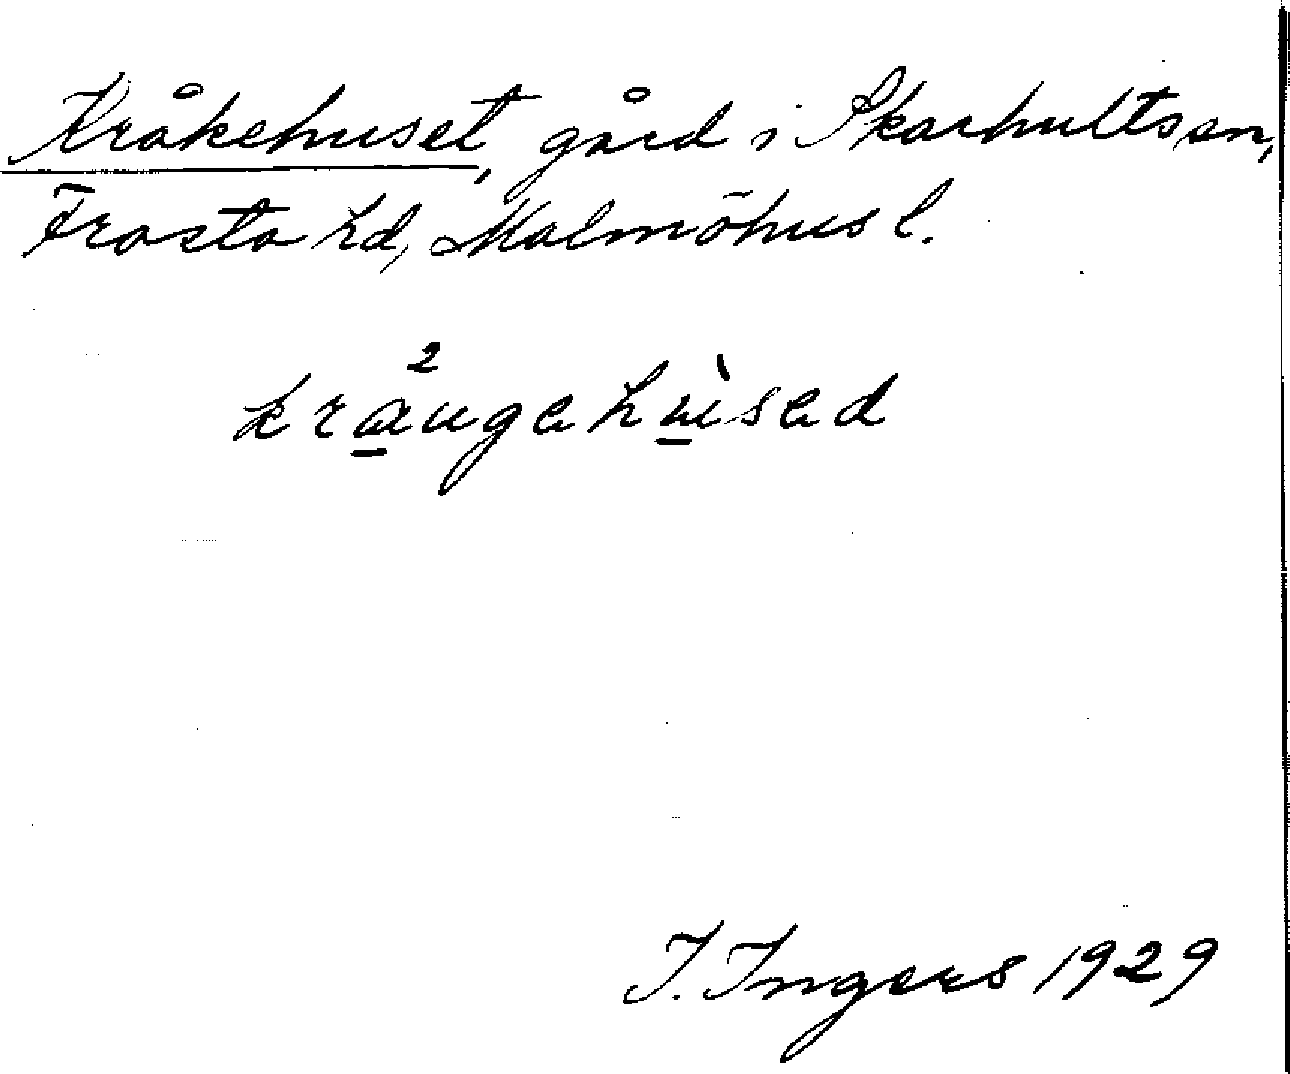 Kråkehuset, gård i Skarhults sn,
Frosta hd, Malmöhus l.
I. Ingers 1929